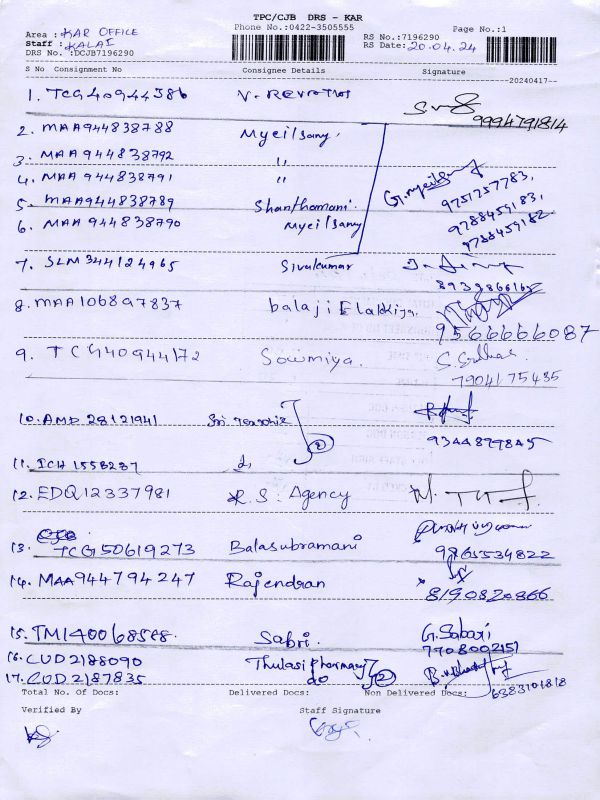 TPC/CJB DRS - KAR
Phone No.:0422-3505555 Page No.:1
Area : KAR OFFICE RS No.:7196290
Staff : KALAI RS Date: 20.04.24
DRS No. :DCJB7196290
S No Consignment No Consignee Details Signature
--20240417--
1. TCG40944386 V. Revathi
9994791814
2. MAA944838788 Myeilsamy.
3. MAA 944838792 "
4. MAA 944838791 " G. myeilsamy
5. MAA944838789 Shanthamani. 9751757783,
6. MAA 944838790 Myeilsamy 9788459183,
9788459182.
7. SLM344124965 Sivakumar
8939866162
8. MAA106897837 balaji Elakkiya.
9566666087
9. TCG40944172 Sowmiya. S. Sridhar
7904175435
10. AMD 28121941 Sri
9344899845
11. ICH 1558237 2
12. EDQ12337981 R.S. Agency
13. TCG50619273 Balasubramani 9865534822
14. MAA944794247 Rajendran 8190820866
15. TM140068588. Sabri. G. Sabari
7708002151
16. CUD2188090 Thulasi Pharmacy
17. CUD2187835 do 2 6383101818
Total No. Of Docs: Delivered Docs: Non Delivered Docs:
Verified By Staff Signature